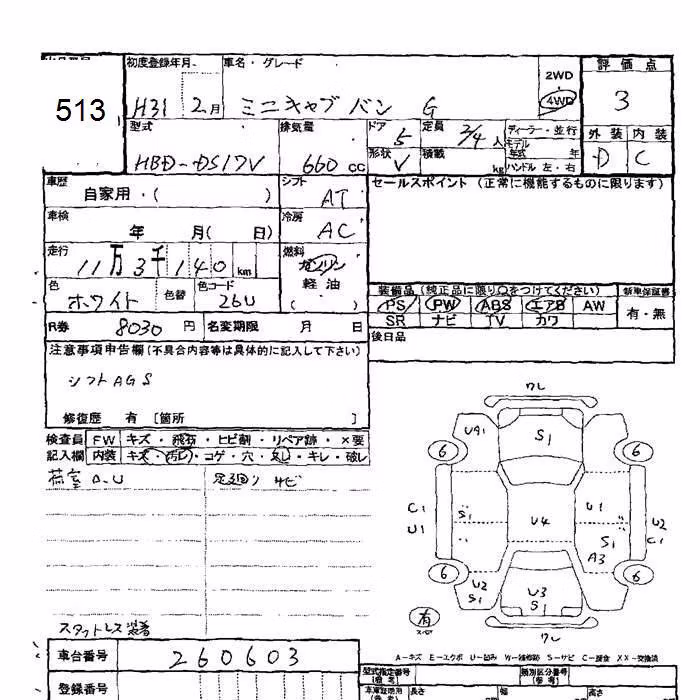 初度登録年月 車名・グレード 評価点
513 H31 2月 ミニキャブ バン G 2WD 4WD 3
型式 排気量 ドア 定員 ディーラー・並行 外装 内装
HBD-DS17V 660 cc 5 2/4 人 モデル 年式 年 D C
形状 V 積載 kg ハンドル 左・右
車歴 シフト セールスポイント (正常に機能するものに限ります)
自家用・( ) AT
車検 冷房
年 月( 日) AC
走行 燃料
11万3千140 km ガソリン
色 色替 色コード 軽油
ホワイト 26U ( )
装備品(純正品に限り○をつけてください) 新車保証書
PS PW ABS エアB AW 有・無
SR ナビ TV カワ
R券 8030 円 名変期限 月 日
後日品
注意事項申告欄(不具合内容等は具体的に記入して下さい)
シフトAGS
修復歴 有 [箇所 ]
検査員 FW キズ・飛石・ヒビ割・リペア跡・×要
記入欄 内装 キズ・汚レ・コゲ・穴・欠し・キレ・破レ
荷室 A.U 足廻り サビ
ワレ
UA1 S1
6 6
C1 S1 U4 U1 U2
U1 S1 C1
A3
6 6
U2 U3
S1 S1
有
ワレ
スタットレス 装着
A-キズ E-エクボ U-凹み W-補修跡 S-サビ C-腐食 XX-交換済
車台番号 260603
型式指定番号 類別区分番号
(備考) (備考)
登録番号 長さ 幅 高さ